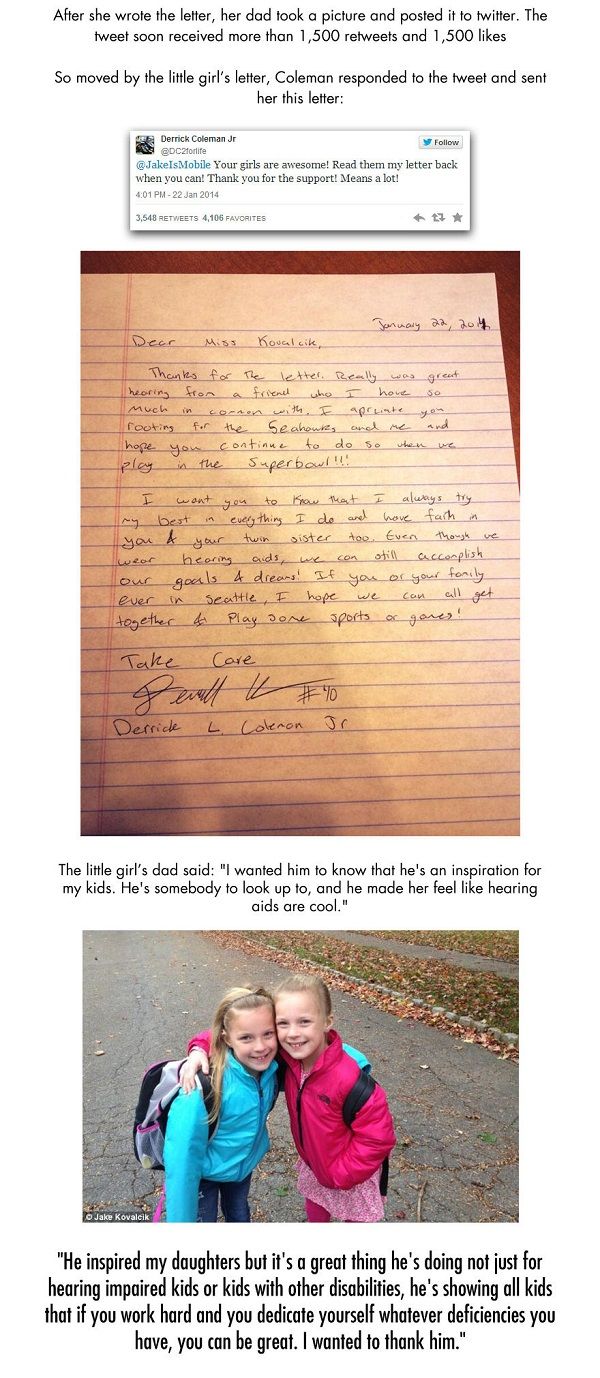 After she wrote the letter, her dad took a picture and posted it to twitter. The
tweet soon received more than 1,500 retweets and 1,500 likes
So moved by the little girl’s letter, Coleman responded to the tweet and sent
her this letter:
Derrick Coleman Jr
@DC2forlife
Follow
@JakeIsMobile Your girls are awesome! Read them my letter back
when you can! Thank you for the support! Means a lot!
4:01 PM - 22 Jan 2014
3,548 RETWEETS 4,106 FAVORITES
January 22, 2014
Dear Miss Kovalcik,
Thanks for the letter. Really was great
hearing from a friend who I have so
much in common with. I apriciate you
rooting for the Seahawks and me and
hope you continue to do so when we
play in the Superbowl!!!
I want you to know that I always try
my best in everything I do and have faith in
you & your twin sister too. Even though we
wear hearing aids, we can still accomplish
our goals & dreams! If you or your family
ever in Seattle, I hope we can all get
together & Play some sports or games!
Take Care
#40
Derrick L. Coleman Jr
The little girl’s dad said: "I wanted him to know that he's an inspiration for
my kids. He's somebody to look up to, and he made her feel like hearing
aids are cool."
© Jake Kovalcik
"He inspired my daughters but it's a great thing he's doing not just for
hearing impaired kids or kids with other disabilities, he's showing all kids
that if you work hard and you dedicate yourself whatever deficiencies you
have, you can be great. I wanted to thank him."